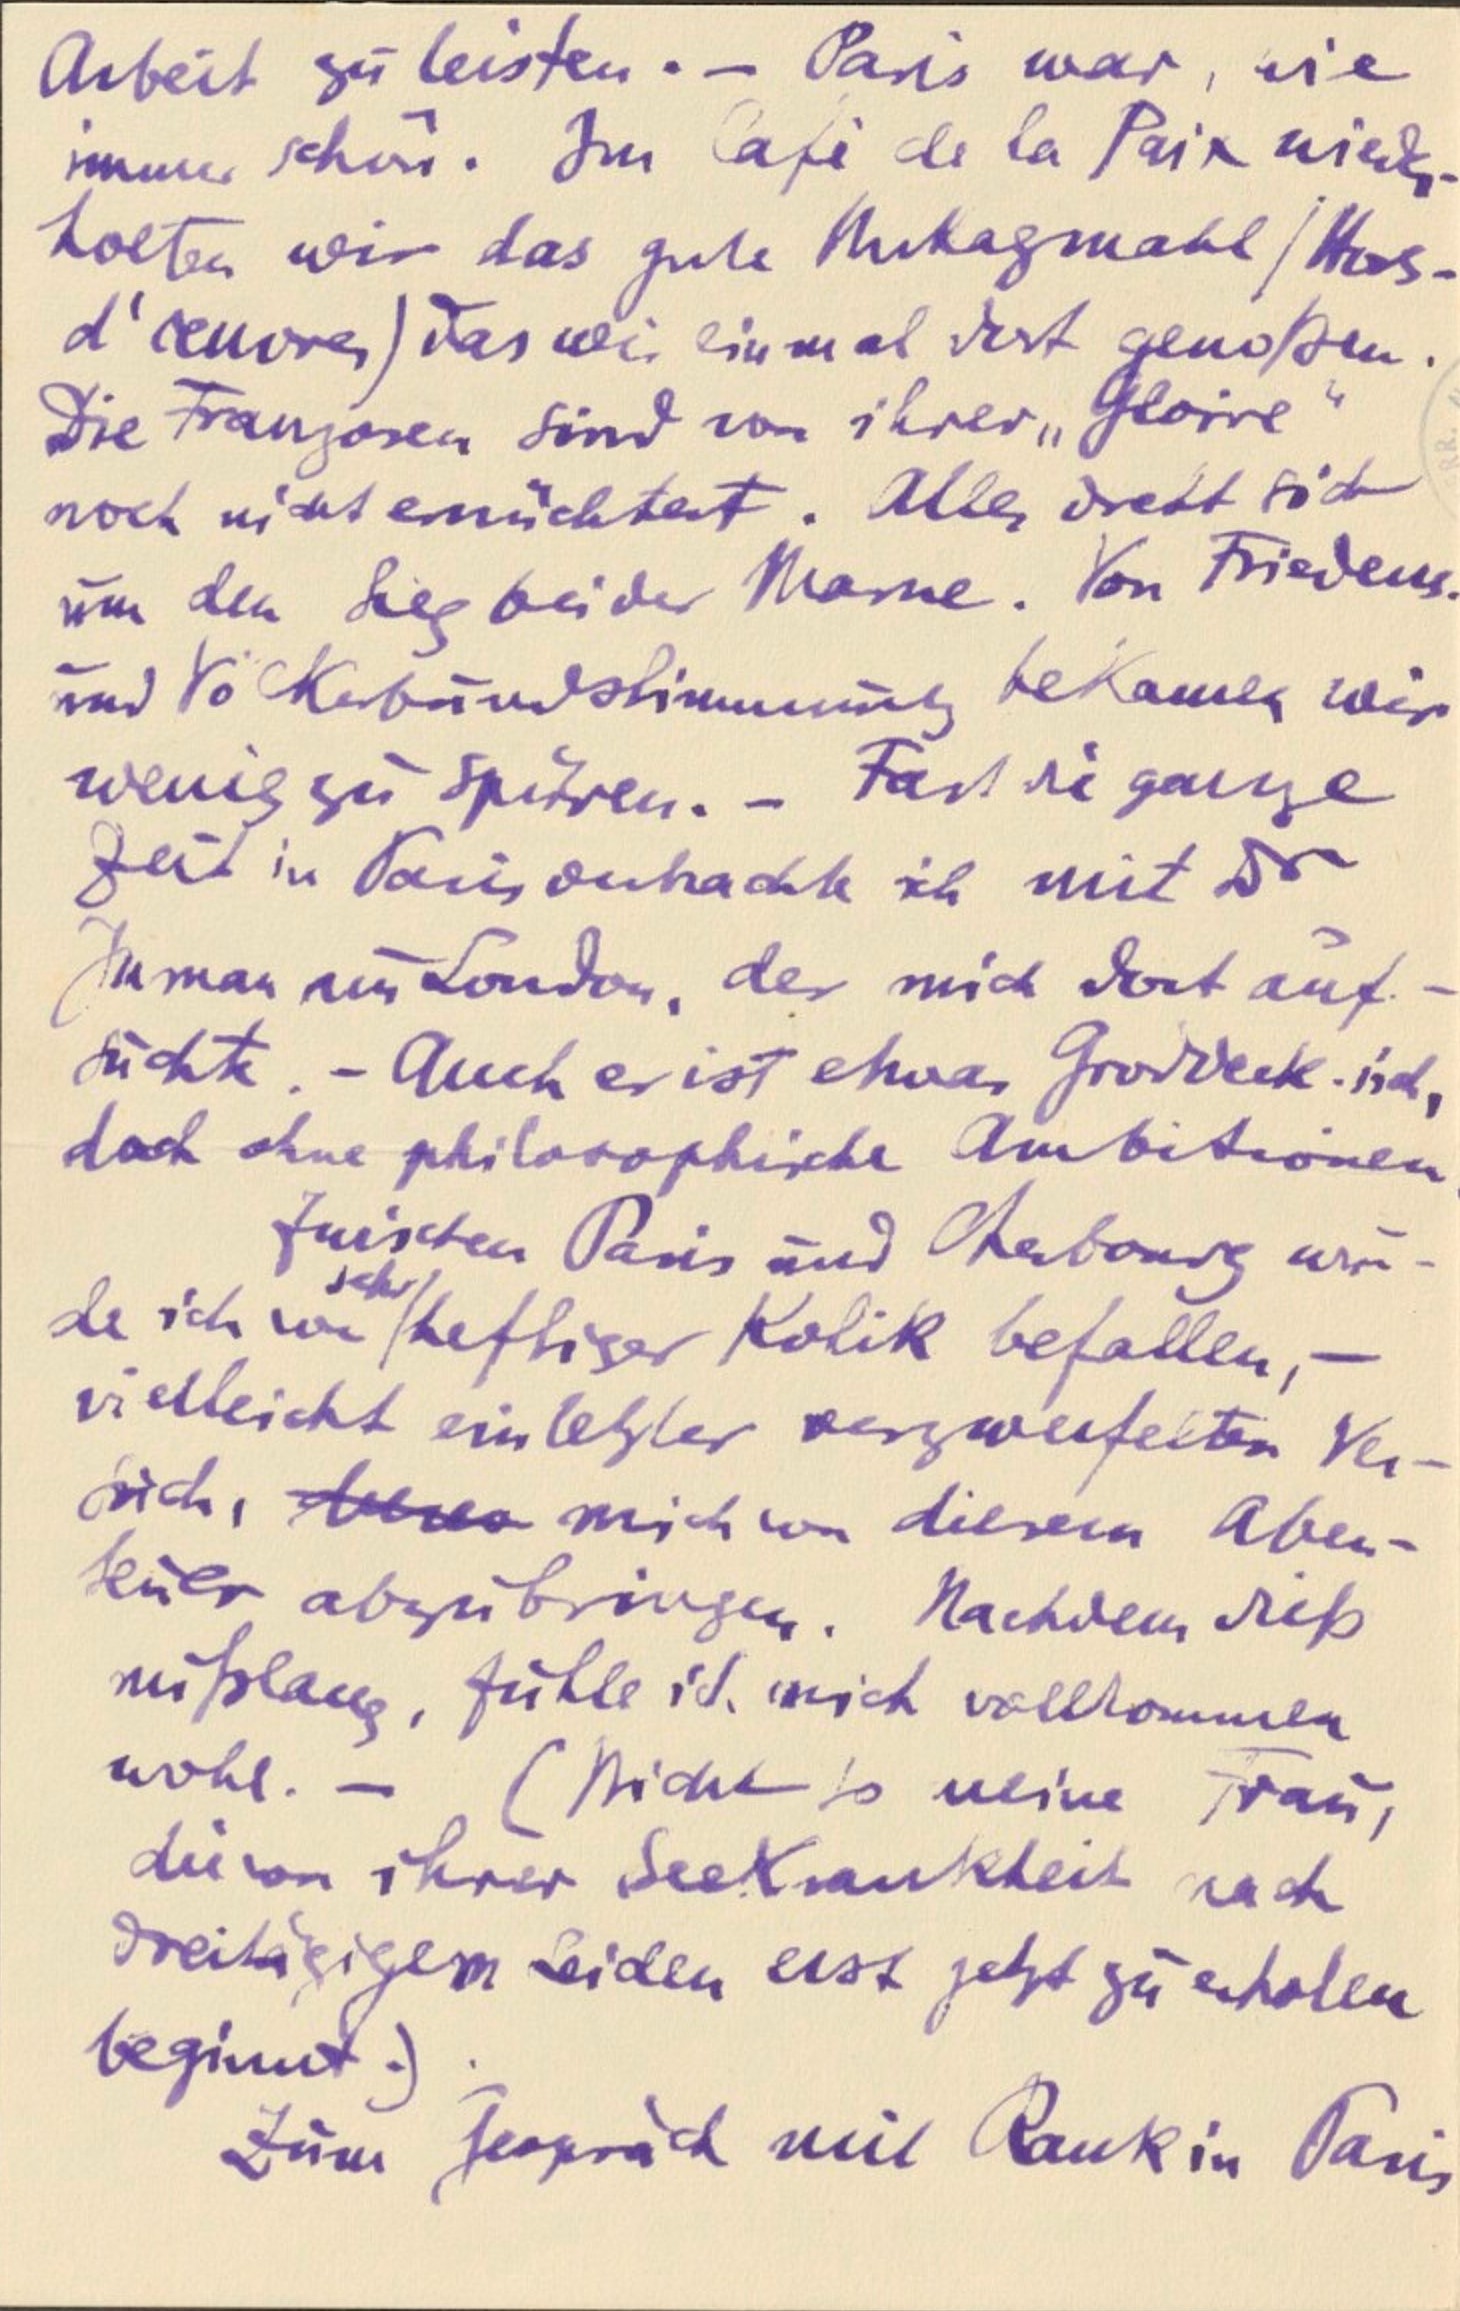 Arbeit zu leisten. – Paris war, wie
immer schön. Im Café de la Paix wieder-
holten wir das gute Mittagsmahl (Hors-
d'œuvres) das wir einmal dort genoßen.
Die Franzosen sind von ihrer „Gloire“
noch nicht ernüchtert. Alles dreht sich
um den Sieg bei der Marne. Von Friedens-
und Völkerbundstimmung bekamen wir
wenig zu spüren. – Fast die ganze
Zeit in Paris verbrachte ich mit Dr
Inman aus London, der mich dort auf-
suchte. – Auch er ist etwas Groddeck-isch,
doch ohne philosophische Ambitionen.
Zwischen Paris und Cherbourg wur-
de ich von sehr heftiger Kolik befallen, –
vielleicht ein letzter verzweifelten Ver-
such, mich von diesem Aben-
teuer abzubringen. Nachdem dieß
mißlang, fühle ich mich vollkommen
wohl. – (Nicht so meine Frau,
die von ihrer Seekrankheit nach
dreitägigem Leiden erst jetzt zu erholen
beginnt.)
Zum Gespräch mit Rank in Paris